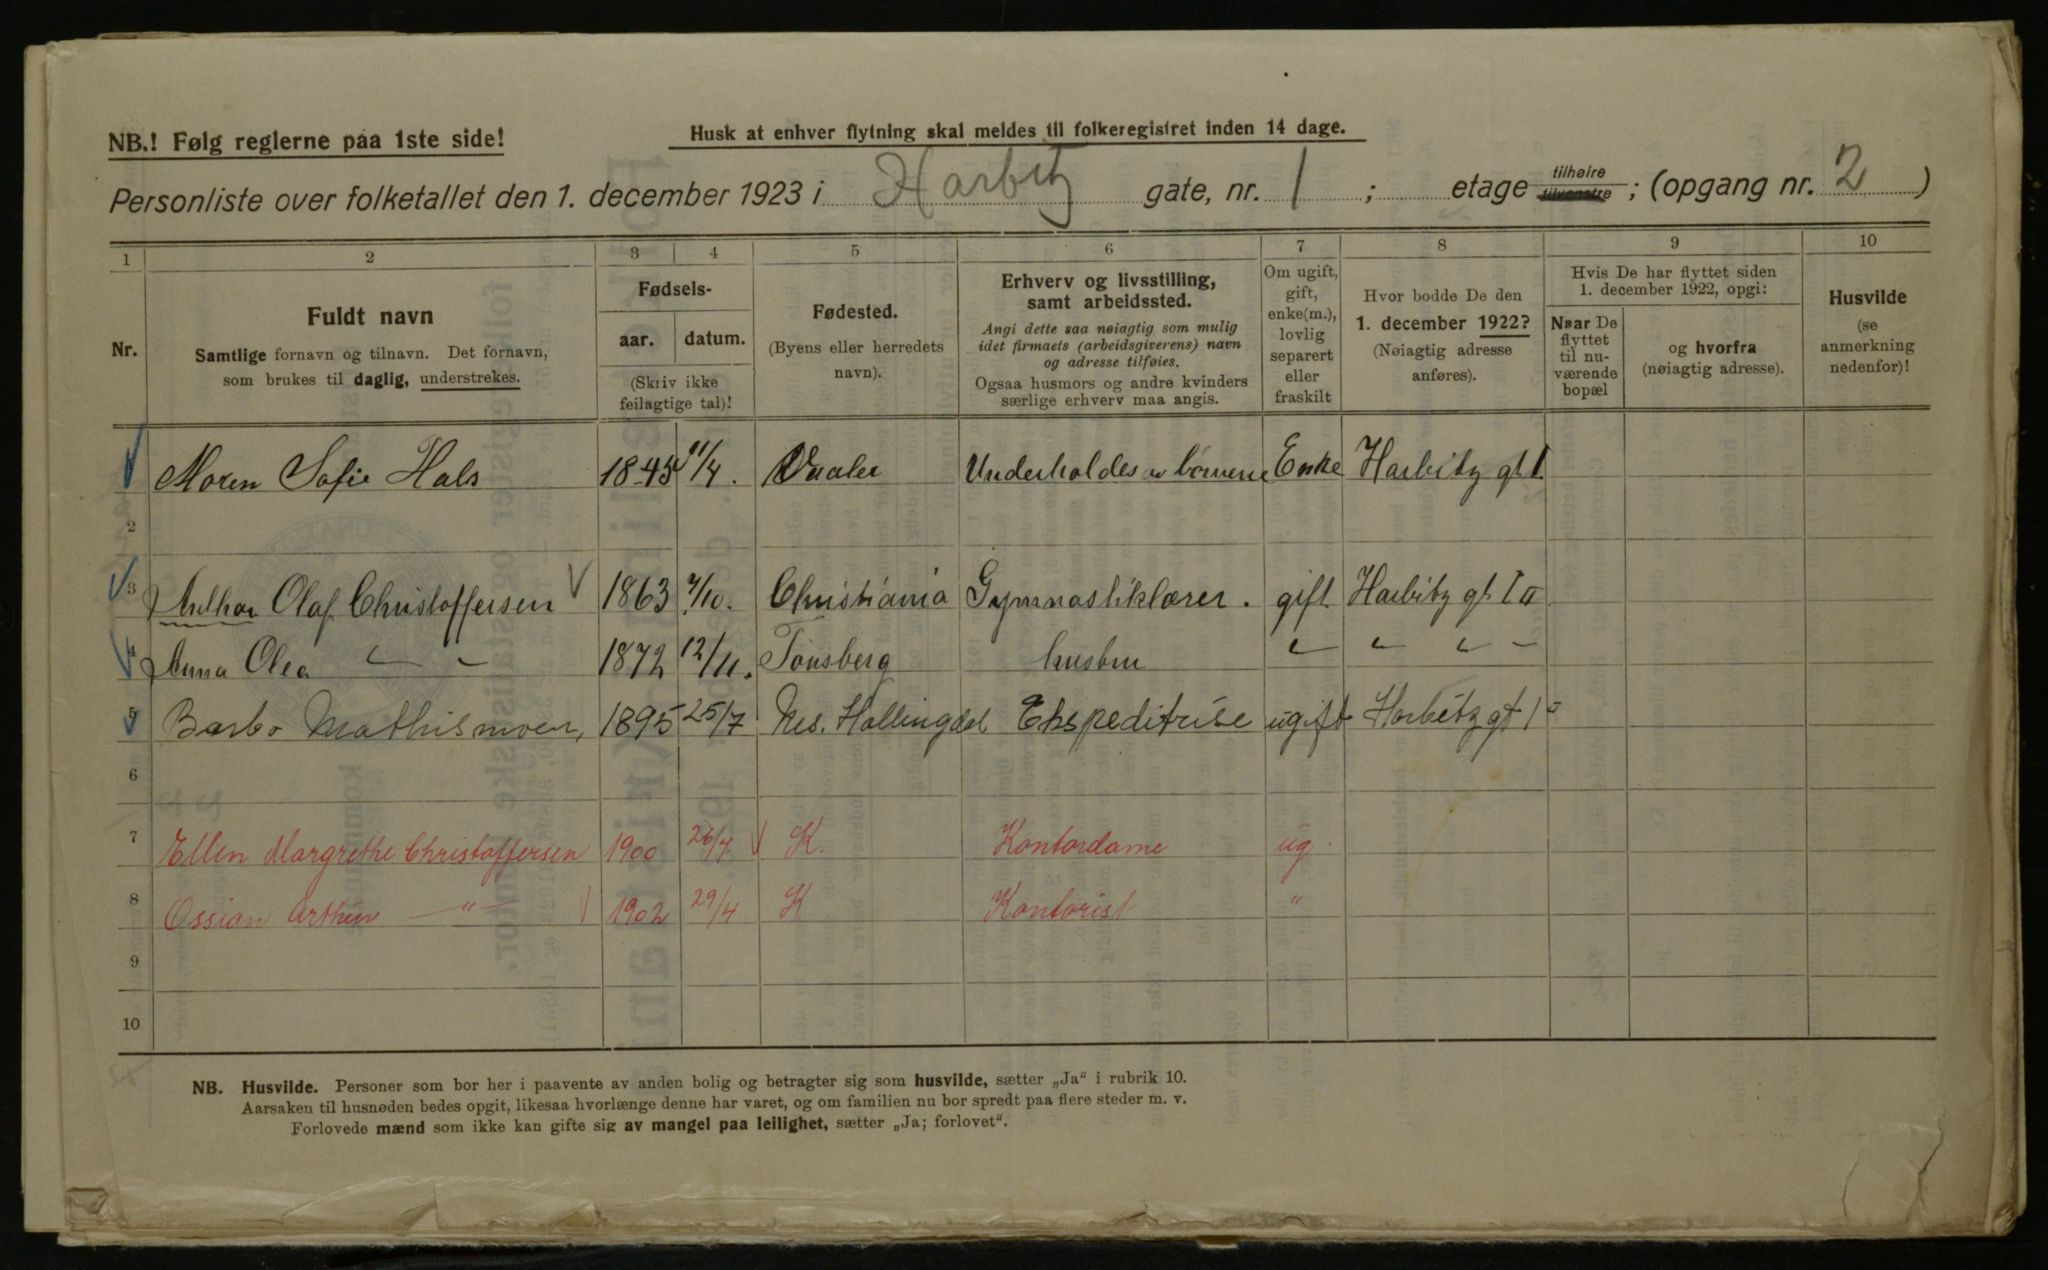 NB.! Følg reglerne paa 1ste side!
Husk at enhver flytning skal meldes til folkeregistret inden 14 dage.
Personliste over folketallet den 1. december 1923 i Harbitz gate, nr. 1 ; etage tilhøire tilvenstre ; (opgang nr. 2 )
1 2 3 4 5 6 7 8 9 10
Nr.
Fuldt navn
Samtlige fornavn og tilnavn. Det fornavn,
som brukes til daglig, understrekes.
Fødsels-
aar. datum.
(Skriv ikke
feilagtige tal)!
Fødested.
(Byens eller herredets
navn).
Erhverv og livsstilling,
samt arbeidssted.
Angi dette saa nøiagtig som mulig
idet firmaets (arbeidsgiverens) navn
og adresse tilføies.
Ogsaa husmors og andre kvinders
særlige erhverv maa angis.
Om ugift,
gift,
enke(m.),
lovlig
separert
eller
fraskilt
Hvor bodde De den
1. december 1922?
(Nøiagtig adresse
anføres).
Hvis De har flyttet siden
1. december 1922, opgi:
Naar De
flyttet
til nu-
værende
bopæl
og hvorfra
(nøiagtig adresse).
Husvilde
(se
anmerkning
nedenfor)!
Maren Sofie Hals 1845 11/4. Vaaler Underholdes av børnene Enke Harbitz gt 1
2
3 Arthur Olaf Christoffersen 1863 7/10. Christiania Gymnastiklærer. gift Harbitz gt. 1 II
4 Anna Olea " - 1872 12/11. Tønsberg husbru " " " -
5 Barbo Mathismoen, 1895 25/7 Nes. Hallingdal Ekspeditrise ugift Harbitz gt 1
6
7 Ellen Margrethe Christoffersen 1900 26/7 K. Kontordame ug.
8 Ossian Arthur — " — 1902 29/4 K Kontorist "
9
10
NB. Husvilde. Personer som bor her i paavente av anden bolig og betragter sig som husvilde, sætter „Ja“ i rubrik 10.
Aarsaken til husnøden bedes opgit, likesaa hvorlænge denne har varet, og om familien nu bor spredt paa flere steder m. v.
Forlovede mænd som ikke kan gifte sig av mangel paa leilighet, sætter „Ja; forlovet“.